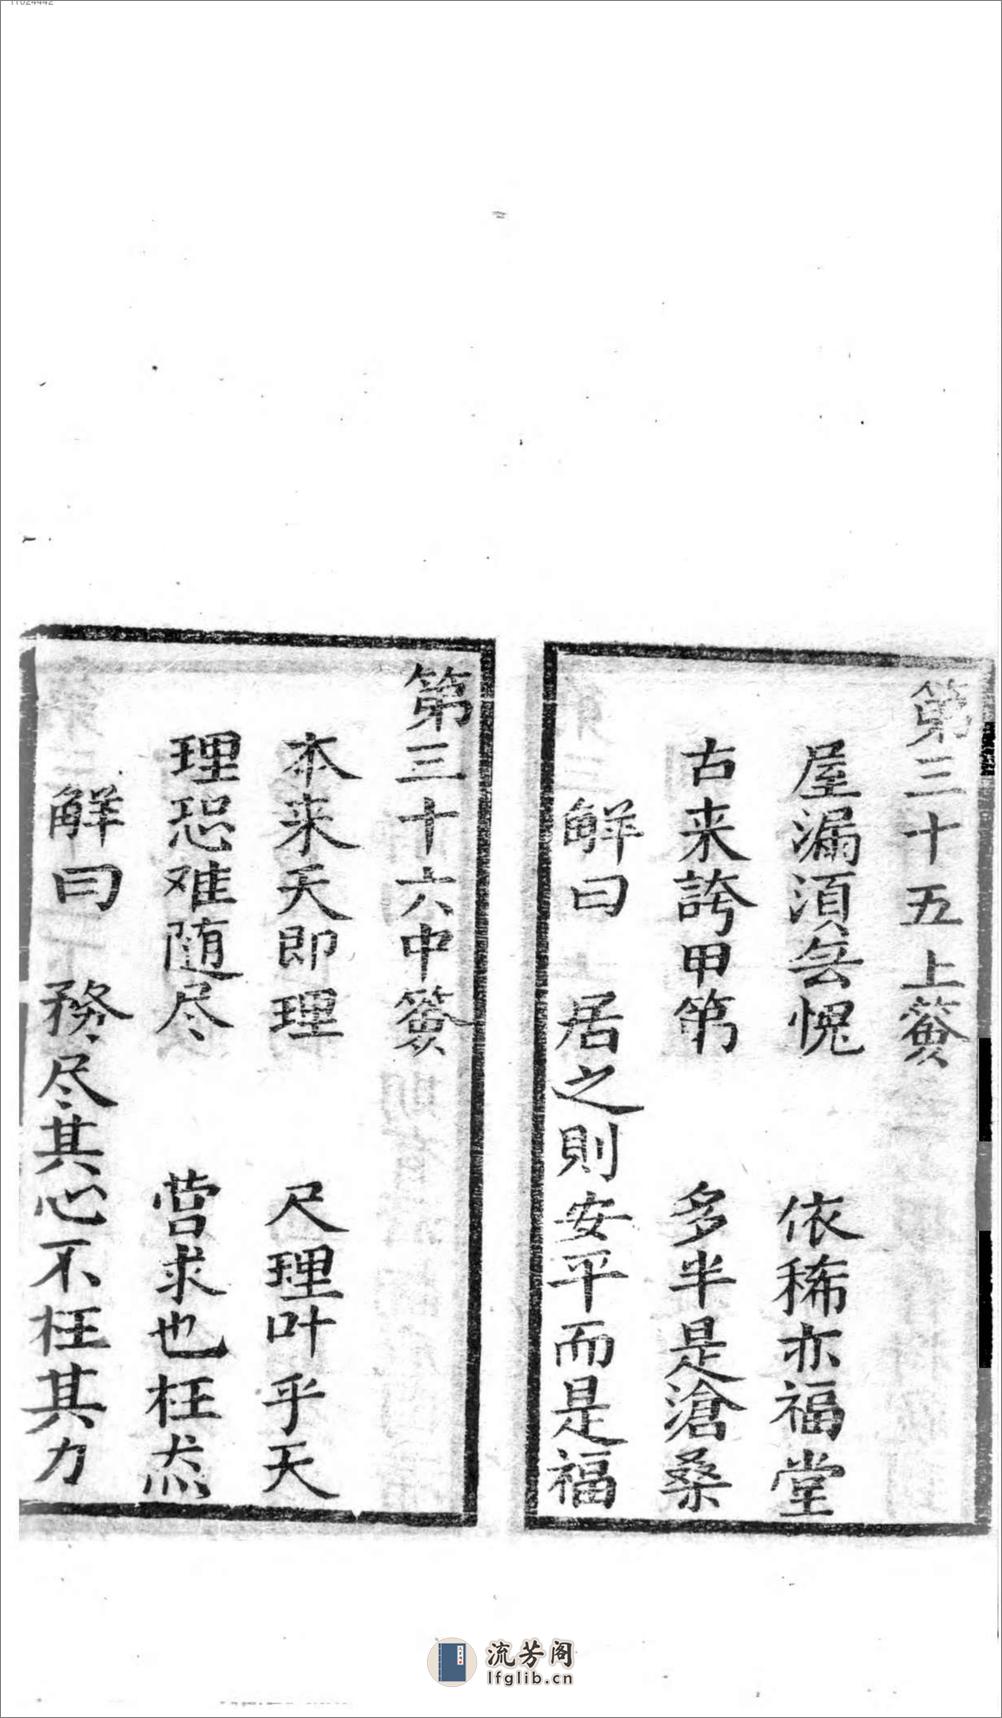 第三十五上簽
屋漏須無愧 依稀亦福堂
古来誇甲第 多半是滄桑
解曰 居之則安平而是福
第三十六中簽
本来天即理 尺理叶乎天
理恐难随尽 営求也枉然
解曰 務尽其心不枉其力
流芳阁
lfglib.cn